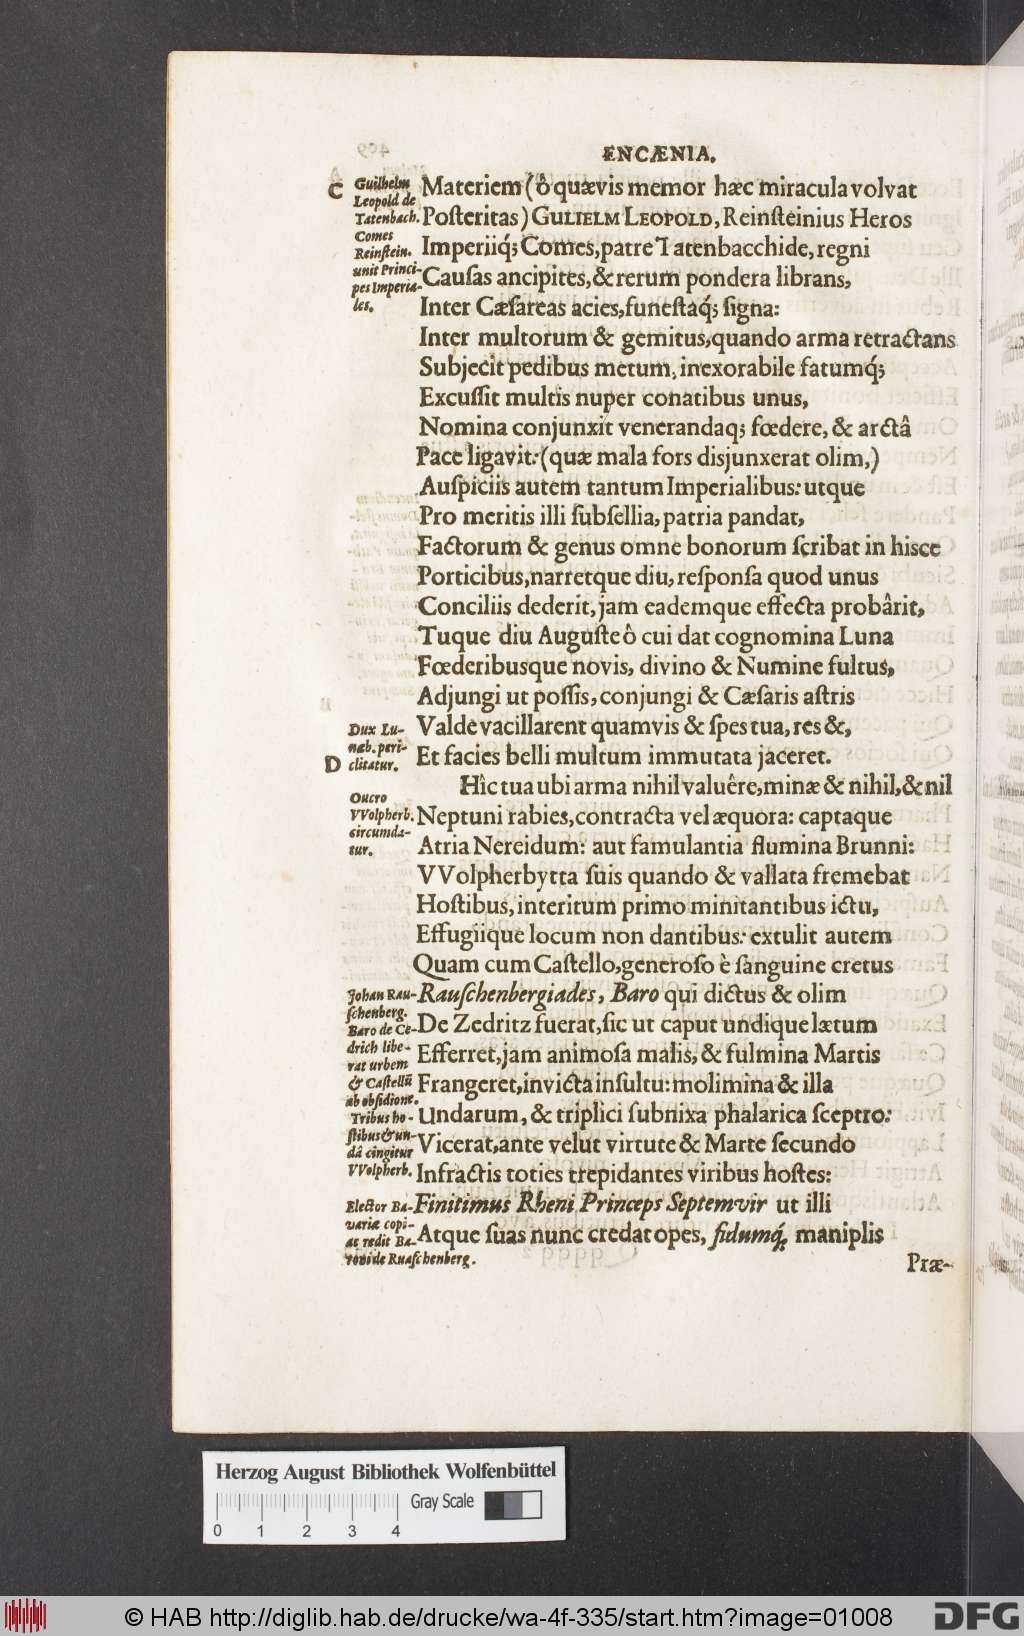 ENCÆNIA.
C
Guilhelm
Leopold de
Tatenbach.
Comes
Reinſtein.
unit Princi-
pes Imperia-
les.
Materiem (ô quævis memor hæc miracula volvat
Poſteritas) GULIELM LEOPOLD, Reinſteinius Heros
Imperiiq́; Comes, patre Tatenbacchide, regni
Cauſas ancipites, & rerum pondera librans,
Inter Cæſareas acies, funeſtaq́; ſigna:
Inter multorum & gemitus, quando arma retractans
Subjecit pedibus metum, inexorabile fatumq́;
Excuſſit multis nuper conatibus unus,
Nomina conjunxit venerandaq; fœdere, & arctâ
Pace ligavit: (quæ mala fors disjunxerat olim,)
Auſpiciis autem tantum Imperialibus: utque
Pro meritis illi ſubſellia, patria pandat,
Factorum & genus omne bonorum ſcribat in hisce
Porticibus, narretque diu, reſponſa quod unus
Conciliis dederit, jam eademque effecta probârit,
Tuque diu Auguſte ô cui dat cognomina Luna
Fœderibusque novis, divino & Numine fultus,
Adjungi ut poſſis, conjungi & Cæſaris aſtris
Dux Lu-
næb. peri-
clitatur.
Valde vacillarent quamvis & ſpes tua, res &,
D
Et facies belli multum immutata jaceret.
Hîc tua ubi arma nihil valuêre, minæ & nihil, & nil
Oucro
VVolpherb.
circumda-
tur.
Neptuni rabies, contracta vel æquora: captaque
Atria Nereidum: aut famulantia flumina Brunni:
VVolpherbytta ſuis quando & vallata fremebat
Hoſtibus, interitum primo minitantibus ictu,
Effugiique locum non dantibus: extulit autem
Quam cum Caſtello, generoſo è ſanguine cretus
Johan Rau-
ſchenberg.
Baro de Ce-
drich libe-
rat urbem
& Caſtellũ
ab obſidione.
Rauſchenbergiades, Baro qui dictus & olim
De Zedritz fuerat, ſic ut caput undique lætum
Efferret, jam animoſa malis, & fulmina Martis
Frangeret, invicta inſultu: molimina & illa
Tribus ho-
ſtibus & un-
dâ cingitur
VVolpherb.
Undarum, & triplici ſubnixa phalarica ſceptro:
Vicerat, ante velut virtute & Marte ſecundo
Infractis toties trepidantes viribus hoſtes:
Elector Ba-
variæ copi-
as redit Ba-
roni de Ruaſchenberg.
Finitimus Rheni Princeps Septemvir ut illi
Atque ſuas nunc credat opes, fidumq́; maniplis
Præ-
Herzog August Bibliothek Wolfenbüttel
Gray Scale
0 1 2 3 4
© HAB http://diglib.hab.de/drucke/wa-4f-335/start.htm?image=01008
DFG